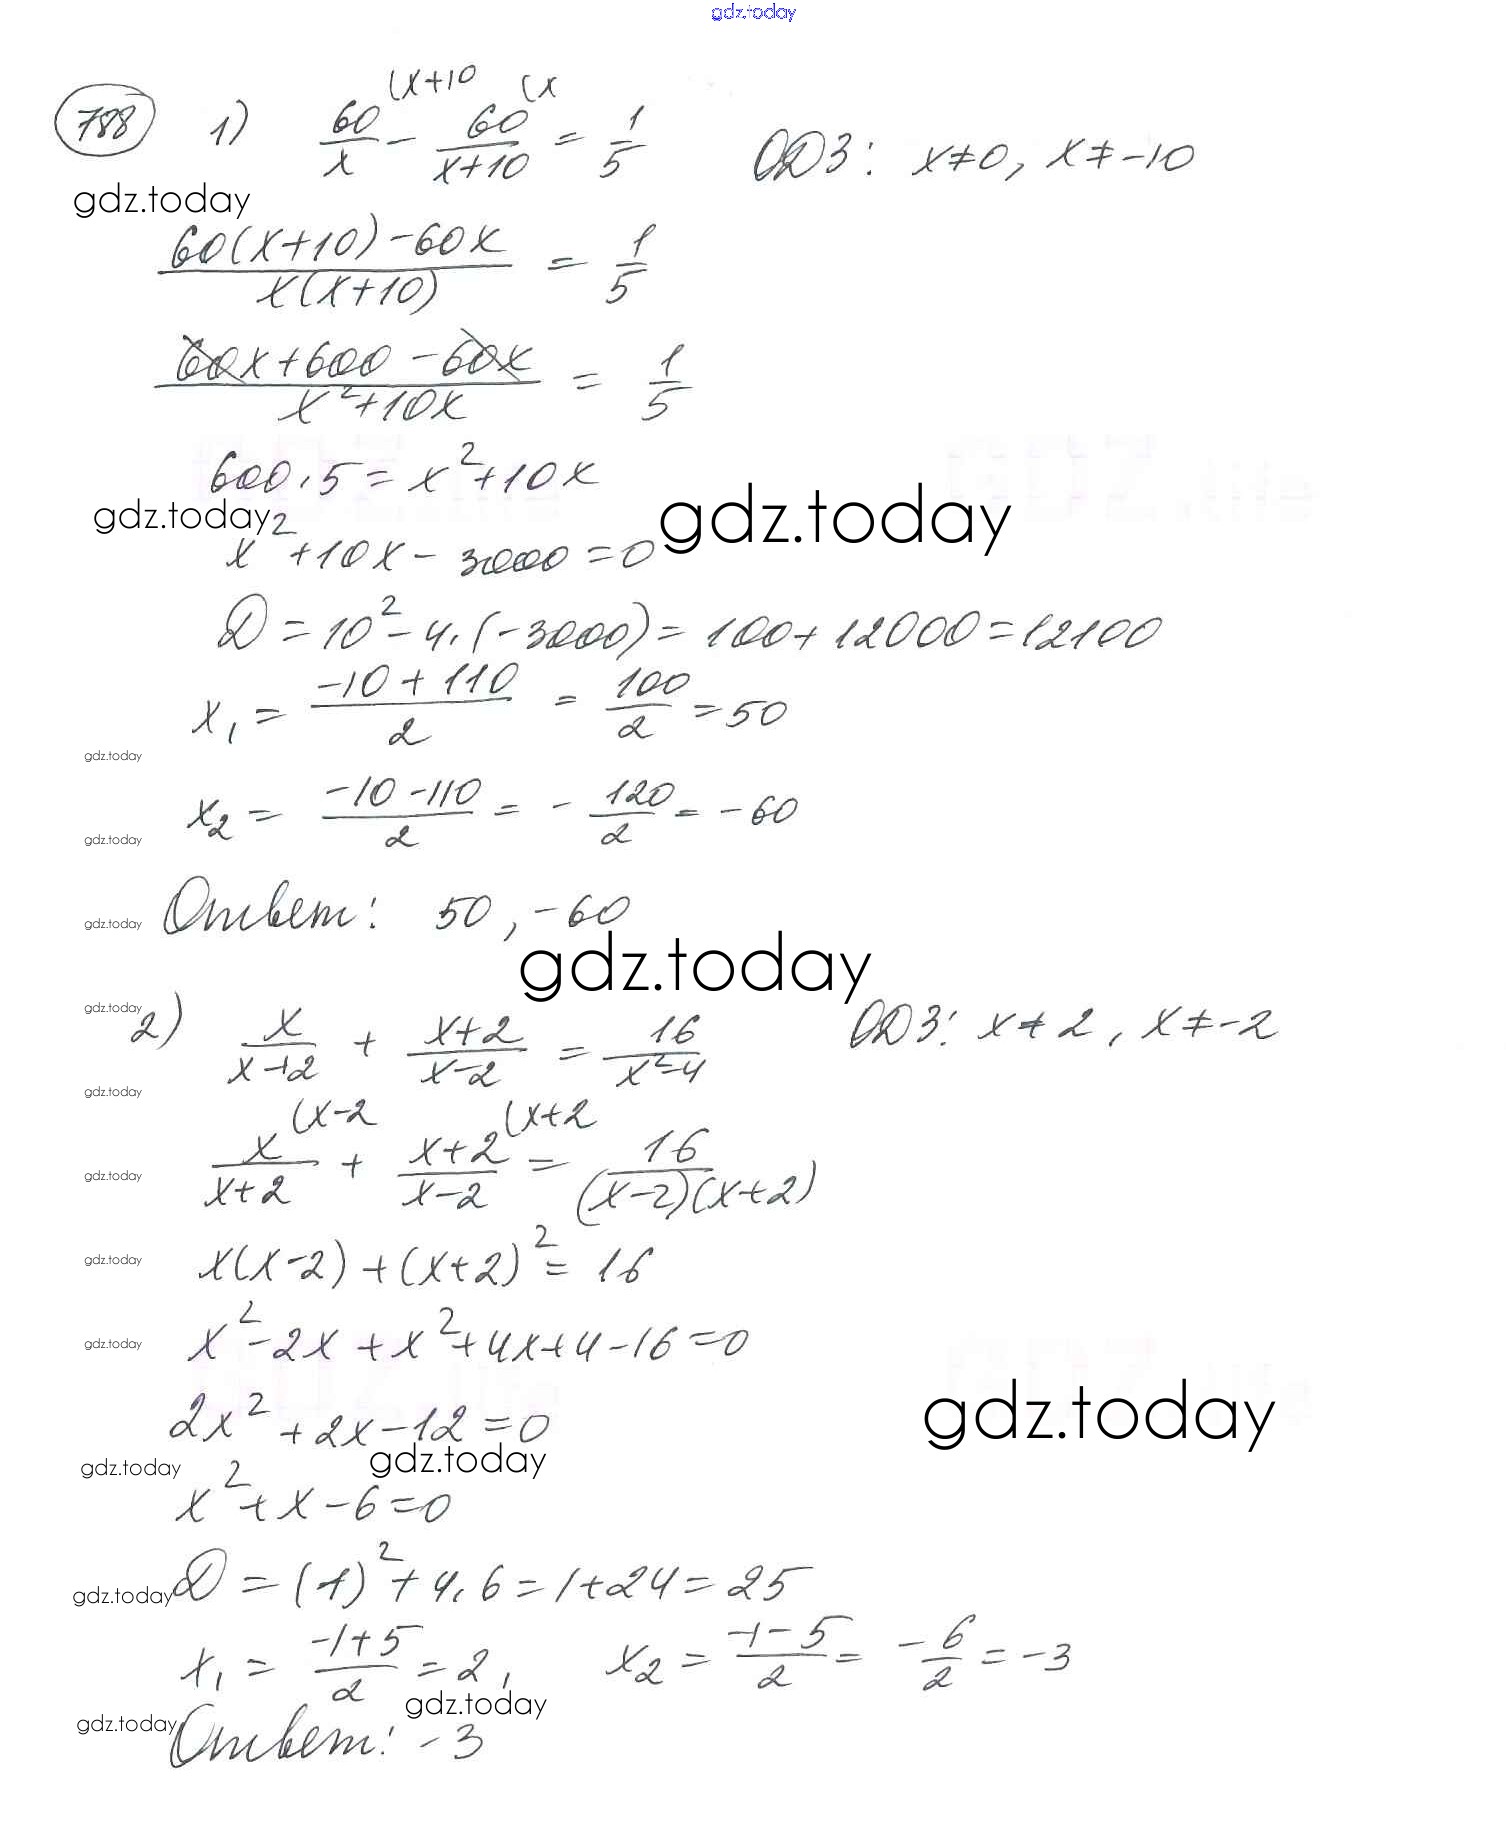 gdz.today
788 1) 60/x (x+10 - 60/(x+10) (x = 1/5 ОДЗ: x≠0, x≠-10
gdz.today
(60(x+10)-60x)/(x(x+10)) = 1/5
(60x+600-60x)/(x²+10x) = 1/5
600·5=x²+10x
gdz.today gdz.today
x²+10x-3000=0
D=10²-4·(-3000)=100+12000=12100
x₁=(-10+110)/2=100/2=50
gdz.today
x₂=(-10-110)/2=-120/2=-60
gdz.today
gdz.today Ответ: 50, -60
gdz.today
gdz.today
2) x/(x+2) + (x+2)/(x-2) = 16/(x²-4) ОДЗ: x≠2, x≠-2
gdz.today
x/(x+2) (x-2 + (x+2)/(x-2) (x+2 = 16/((x-2)(x+2)
gdz.today
gdz.today x(x-2)+(x+2)²=16
gdz.today x²-2x+x²+4x+4-16=0
2x²+2x-12=0 gdz.today
gdz.today gdz.today
x²+x-6=0
gdz.today D=(1)²+4·6=1+24=25
x₁=(-1+5)/2=2, x₂=(-1-5)/2=-6/2=-3
gdz.today
gdz.today Ответ: -3